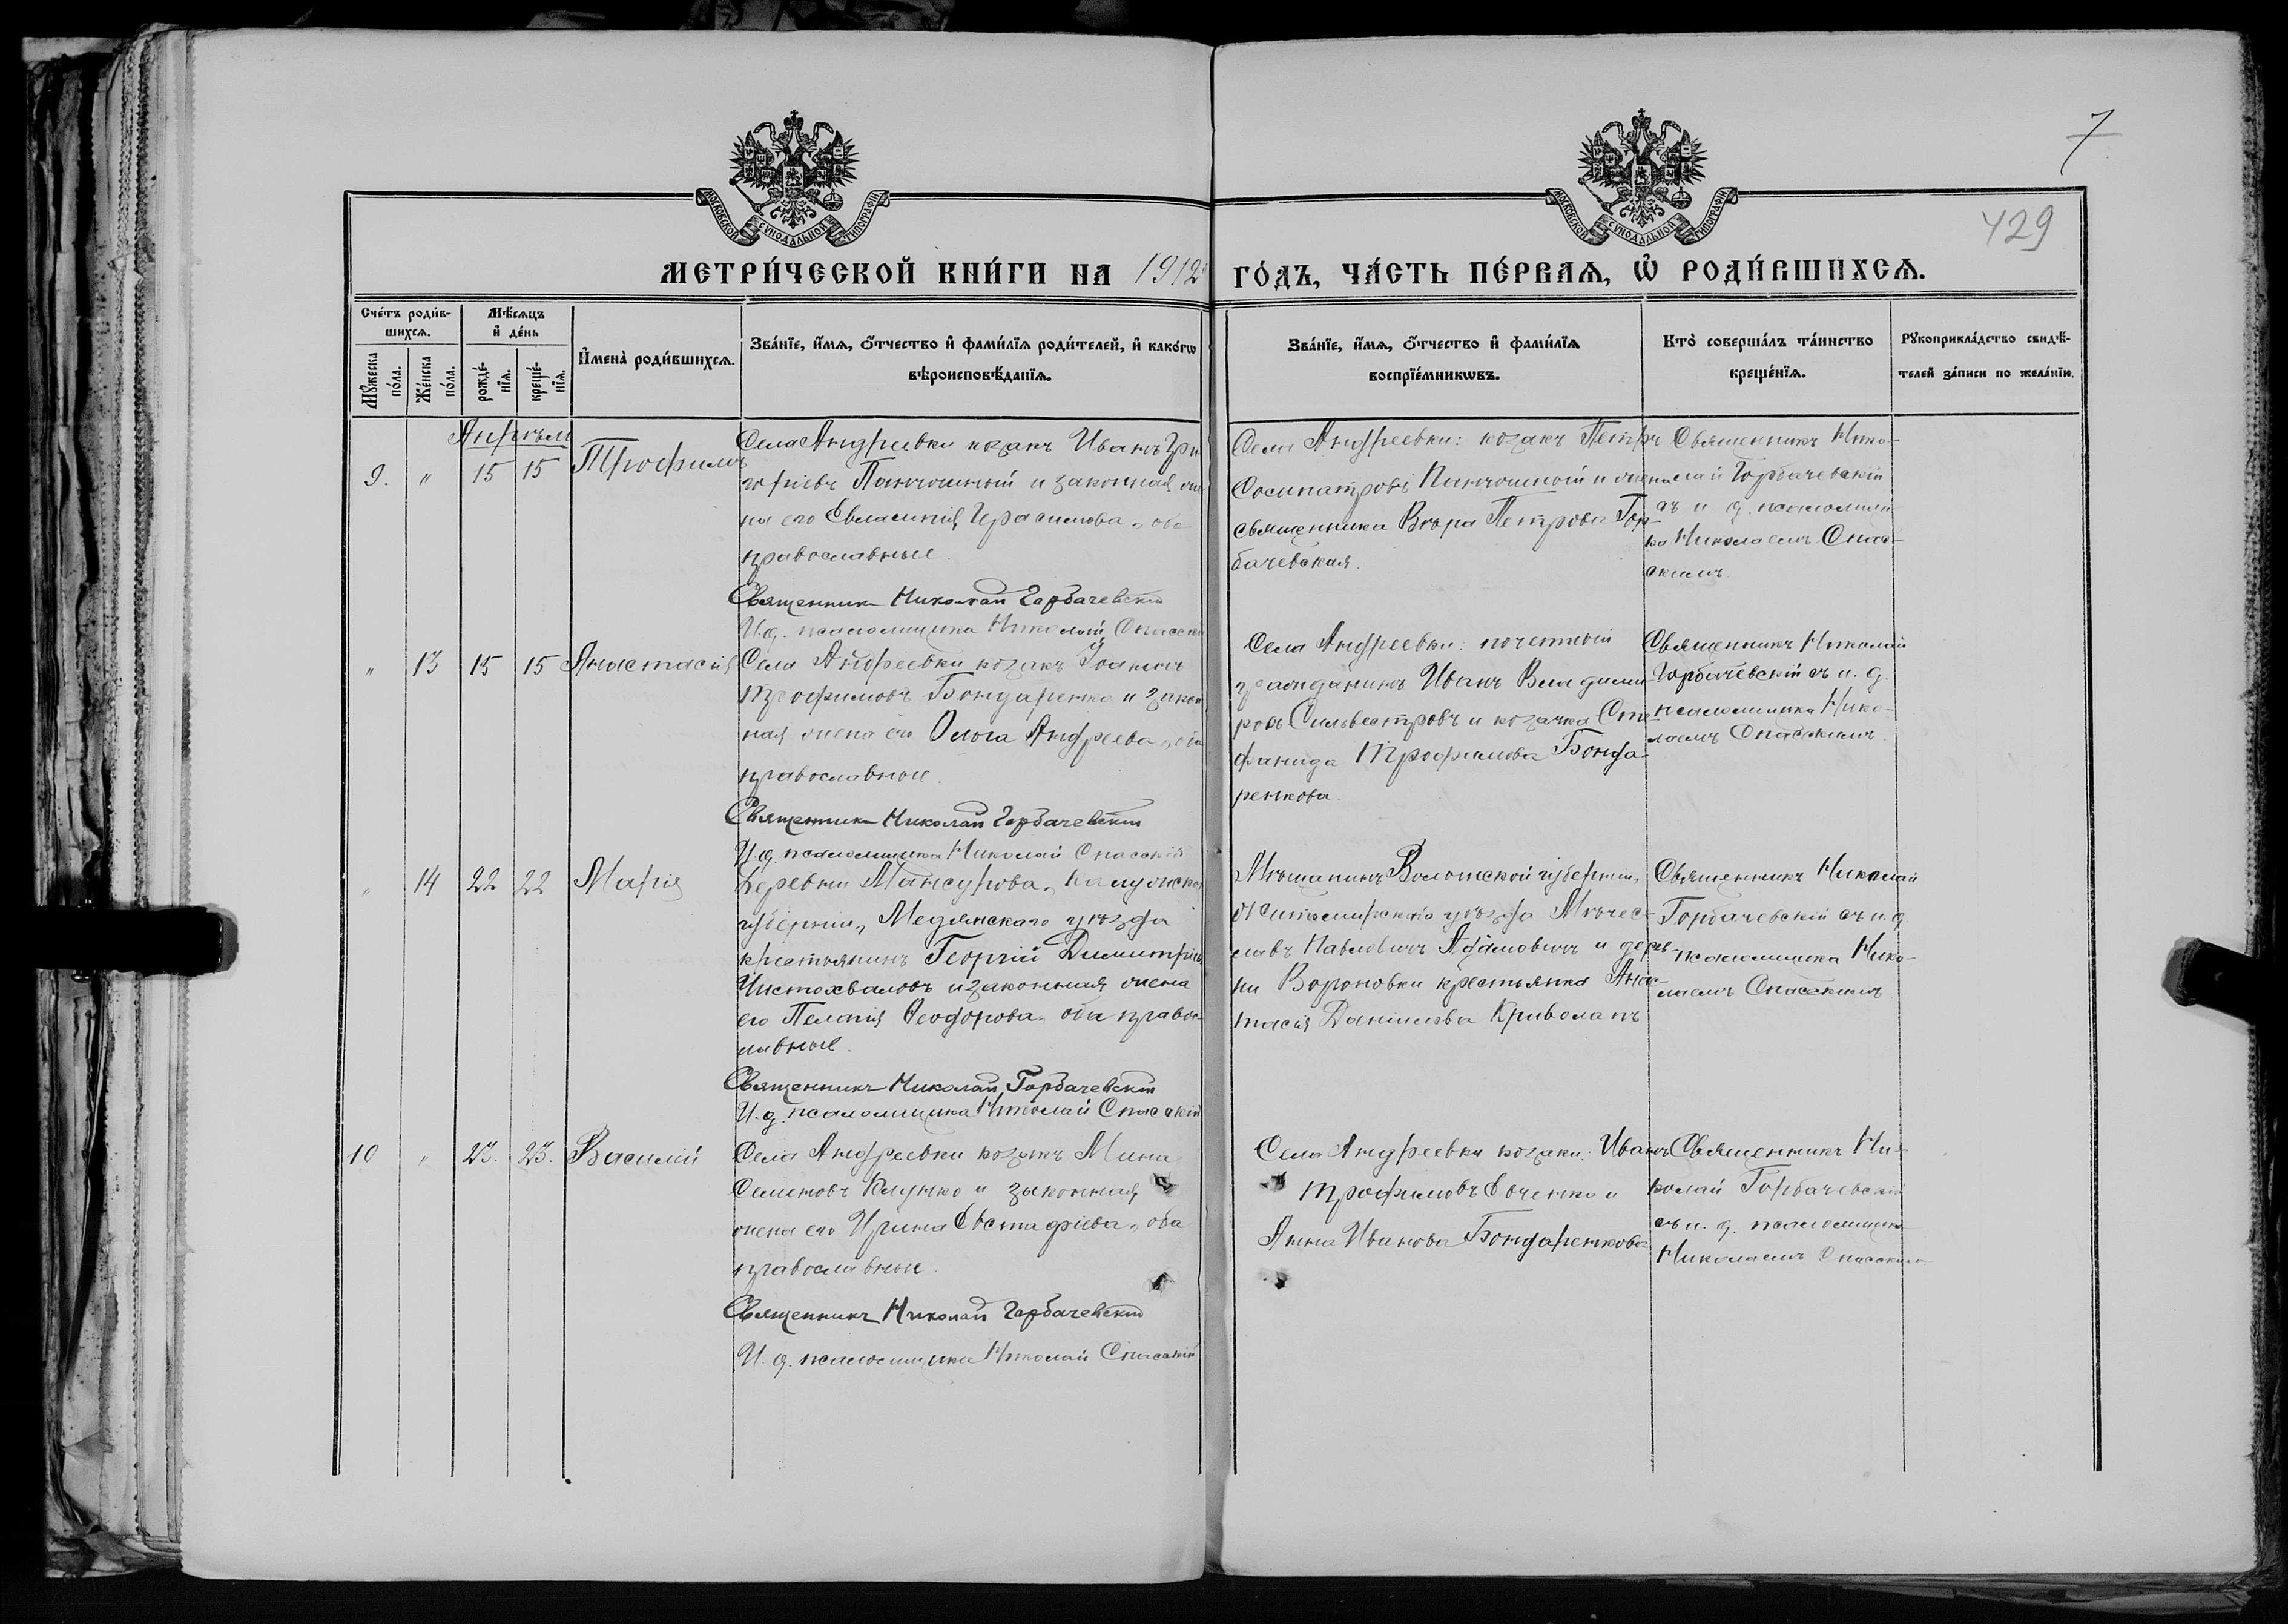 7
429
МОСКОВСКОЙ СУНОДАЛЬНОЙ ТИПОГРАФІИ
МОСКОВСКОЙ СУНОДАЛЬНОЙ ТИПОГРАФІИ
МЕТРИ́ЧЕСКОЙ КНИ́ГИ НА 1912 ГО́ДЪ, ЧА́СТЬ ПЕ́РВАЯ, Ѡ҆ РОДИ́ВШИХСЯ.
Сче́тъ роди́в-
шихся.
Мѣ́сяцъ
и҆ де́нь
Мꙋ́жеска
по́ла.
Же́нска
по́ла.
рожде́-
нїя.
креще́-
нїя.
И҆мена̀ роди́вшихся.
Зва́нїе, и҆́мя, ѻ҆́тчество и҆ фами́лїя роди́телей, и҆ како́гѡ
вѣроисповѣ́данїя.
Зва́нїе, и҆́мя, ѻ҆́тчество и҆ фами́лїя
воспрїе́мникѡвъ.
Кто̀ соверша́лъ та́инство
креще́нїя.
Рꙋкоприкла́дство свидѣ́-
телей за́писи по жела́нїю.
Апрѣль
9. " 15 15 Трофимъ
Села Андреевки козакъ Иванъ Гри-
горіевъ Пантошный и законная же-
на его Евласипія Герасимова, оба
православные.
Священникъ Николай Горбачевскій
И. д. псаломщика Николай Спасскій
Села Андреевки: козакъ Петръ
Сосипатровъ Пантошный и жена
священника Вѣра Петрова Гор-
бачевская.
Священникъ Нико-
лай Горбачевскій
съ и. д. псаломщи-
ка Николаемъ Спас-
скимъ.
" 13 15 15 Анастасія
Села Андреевки козакъ Іоаннъ
Трофимовъ Бондаренко и закон-
ная жена его Ольга Андреева, оба
православные.
Священникъ Николай Горбачевскій
И. д. псаломщика Николай Спасскій
Села Андреевки: почетный
гражданинъ Иванъ Владими-
ровъ Сильвестровъ и козачка Сте-
фанида Трофимова Бонда-
ренкова.
Священникъ Николай
Горбачевскій съ и. д.
псаломщика Нико-
лаемъ Спасскимъ.
" 14 22 22 Марія
Деревни Мансурова, Калужской
губерніи, Медынскаго уѣзда
крестьянинъ Георгій Димитріев
Чистохваловъ и законная жена
его Пелагія Ѳеодорова, оба правос-
лавные.
Священникъ Николай Горбачевскій
И. д. псаломщика Николай Спасскій
Мѣщанинъ Волынской губерніи,
Житомирскаго уѣзда Мечес-
лавъ Павловичъ Адамовичъ и дерев-
ни Вороновки крестьянка Анас-
тасія Даніилова Криволапъ
Священникъ Николай
Горбачевскій съ и. д.
псаломщика Нико-
лаемъ Спасскимъ
10 " 23. 23. Василій
Села Андреевки козакъ Мина
Семеновъ Клунко и законная
жена его Ирина Евстафіева, оба
православные.
Священникъ Николай Горбачевскій
И. д. псаломщика Николай Спасскій
Села Андреевки козаки: Иванъ
Трофимовъ Евченко и
Анна Иванова Бондаренкова
Священникъ Ни-
колай Горбачевскій
съ и. д. псаломщика
Николаемъ Спасскимъ